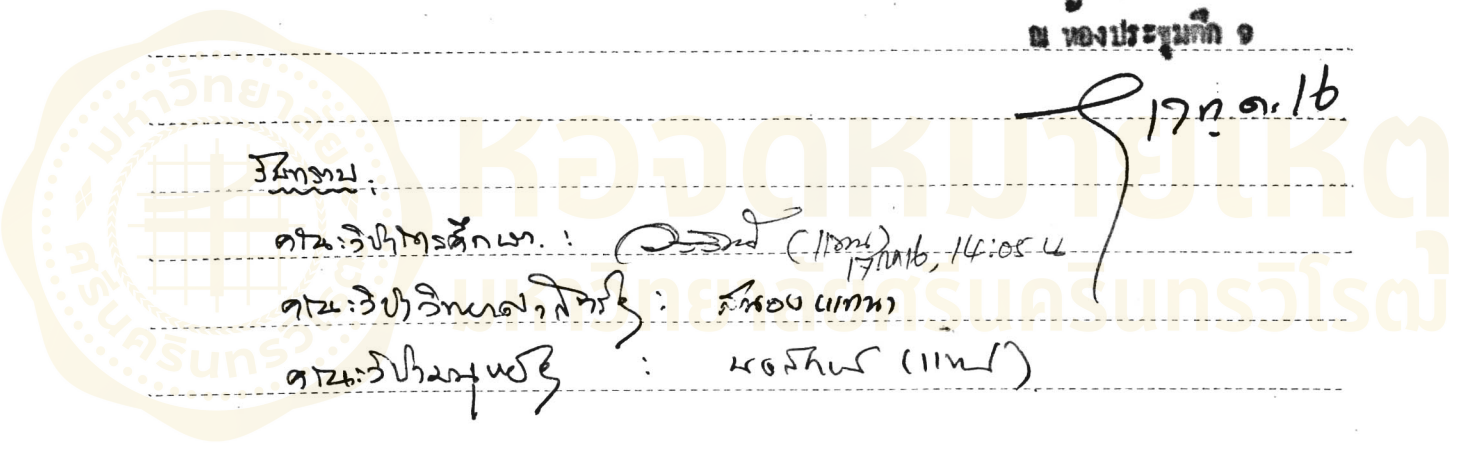 ณ ห้องประชุมตึก ๑
17 ต.ค. 16
รับทราบ.
คณะวิชาการศึกษา. : (แทน)
17 ตค 16, 14:05 น
คณะวิชาวิทยาศาสตร์ฯ : สนอง แทนา
คณะวิชามนุษย์ฯ : (แทน)
หอจดหมายเหตุ
มหาวิทยาลัยศรีนครินทรวิโรฒ